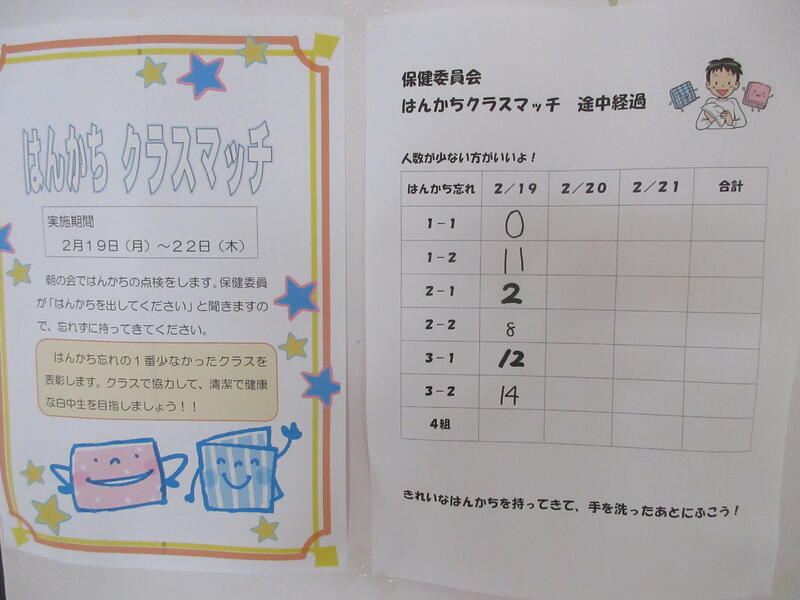 はんかち クラスマッチ
実施期間
2月19日(月)~22日(木)
朝の会ではんかちの点検をします。保健委員
が「はんかちを出してください」と聞きますの
で、忘れずに持ってきてください。
はんかち忘れの1番少なかったクラスを
表彰します。クラスで協力して、清潔で健康
な白中生を目指しましょう!!
保健委員会
はんかちクラスマッチ 途中経過
人数が少ない方がいいよ!
はんかち忘れ 2/19 2/20 2/21 合計
1-1 0
1-2 11
2-1 2
2-2 8
3-1 12
3-2 14
4組
きれいなはんかちを持ってきて、手を洗ったあとにふこう!